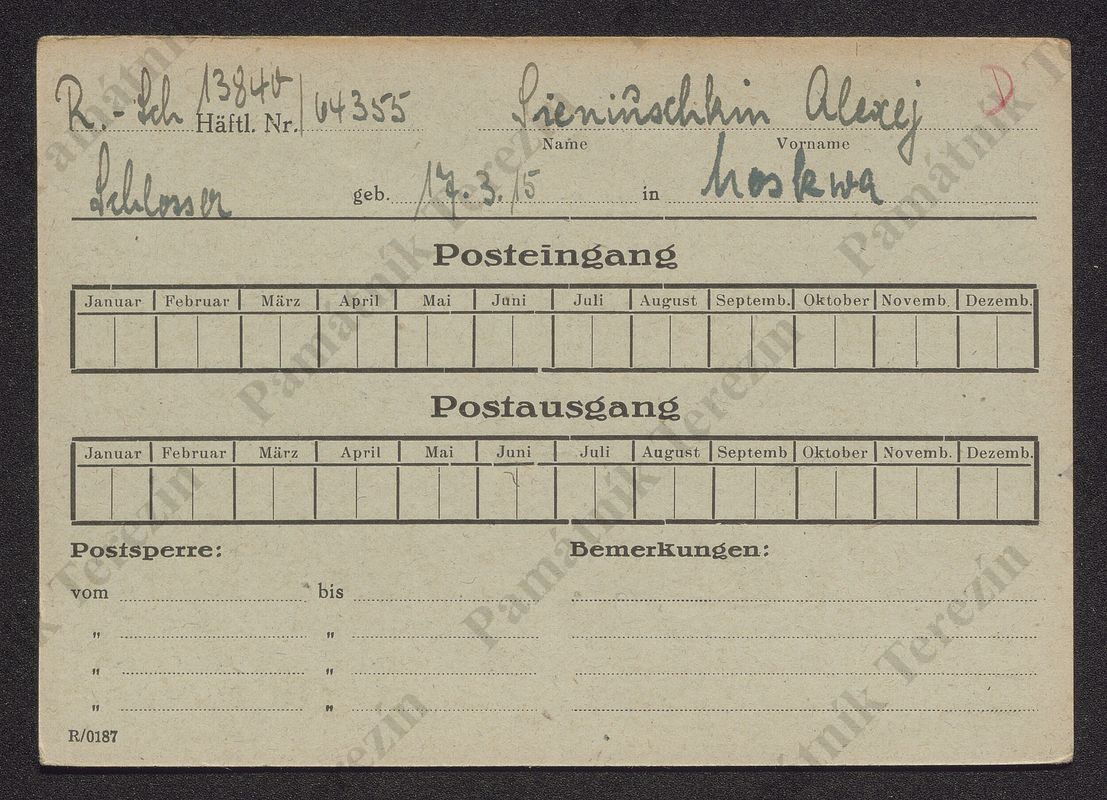 R.-Sch 13840 Häftl. Nr. 64355 Sieniuschkin Alexej
Name Vorname
Schlosser geb. 17.3.15 in Moskwa
Posteingang
Januar Februar März April Mai Juni Juli August Septemb. Oktober Novemb. Dezemb.
Postausgang
Januar Februar März April Mai Juni Juli August Septemb Oktober Novemb. Dezemb.
Postsperre: Bemerkungen:
vom bis
" "
" "
" "
R/0187
Památník Terezín